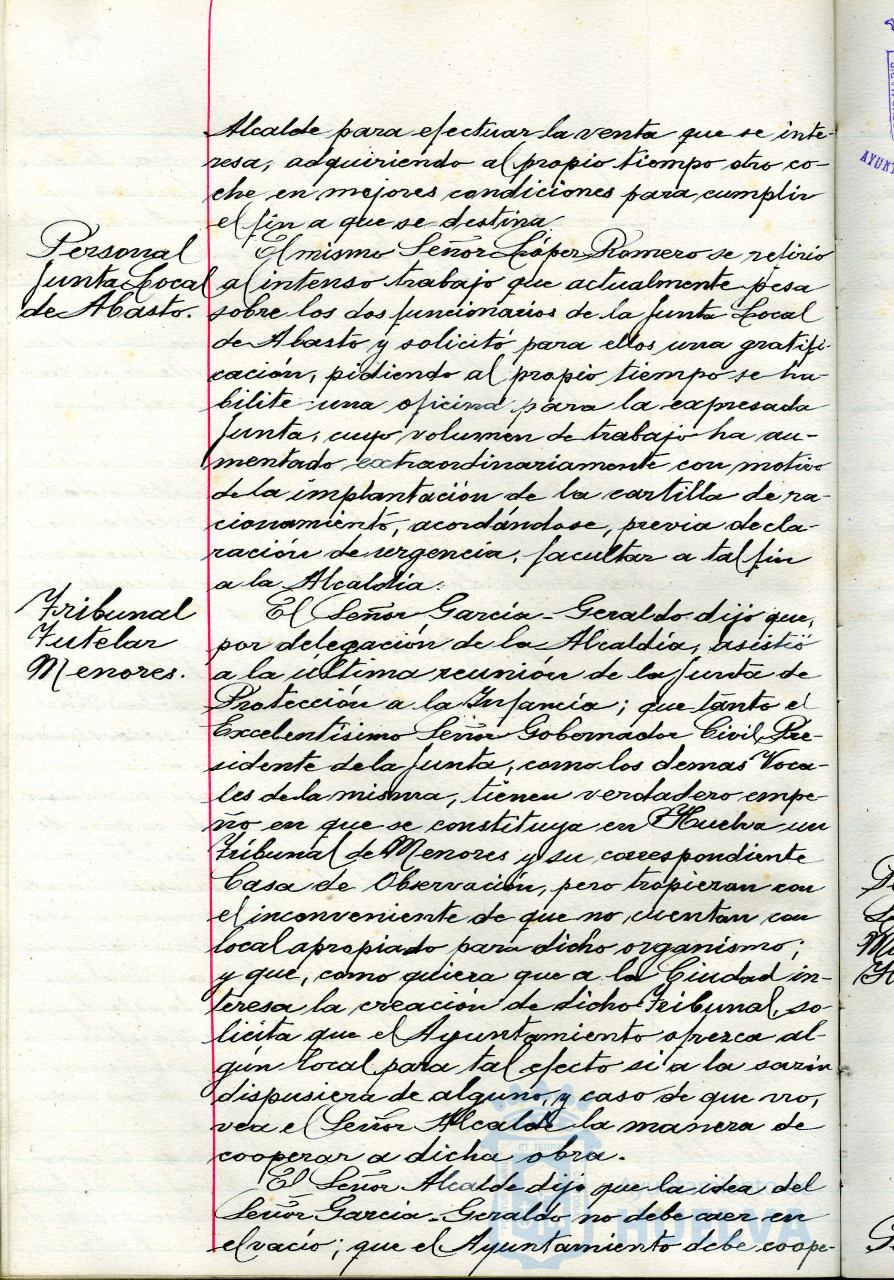 Alcalde para efectuar la venta que se inte-
resa, adquiriendo al propio tiempo otro co-
che en mejores condiciones para cumplir
el fin a que se destina.
Personal
Junta Local
de Abasto.
El mismo Señor López Romero se refirió
al intenso trabajo que actualmente pesa
sobre los dos funcionarios de la Junta Local
de Abasto y solicitó para ellos una gratifi-
cación, pidiendo al propio tiempo se ha-
bilite una oficina para la expresada
Junta, cuyo volumen de trabajo ha au-
mentado extraordinariamente con motivo
de la implantación de la cartilla de ra-
cionamiento, acordándose, previa decla-
ración de urgencia, facultar a tal fin
a la Alcaldía.
Tribunal
Tutelar
Menores.
El Señor García-Geraldo dijo que,
por delegación de la Alcaldía, asistió
a la última reunión de la Junta de
Protección a la Infancia; que tanto el
Excelentísimo Señor Gobernador Civil, Pre-
sidente de la Junta, como los demas Voca-
les de la misma, tienen verdadero empe-
ño en que se constituya en Huelva un
Tribunal de Menores y su correspondiente
Casa de Observación, pero tropiezan con
el inconveniente de que no cuentan con
local apropiado para dicho organismo;
y que, como quiera que a la Ciudad in-
teresa la creación de dicho Tribunal, so-
licita que el Ayuntamiento ofrezca al-
gún local para tal efecto si a la sazón
dispusiera de alguno, y caso de que no,
vea el Señor Alcalde la manera de
cooperar a dicha obra.
El Señor Alcalde dijo que la idea del
Señor García-Geraldo no debe caer en
el vacío; que el Ayuntamiento debe coope-
Ayuntamiento de
HUELVA